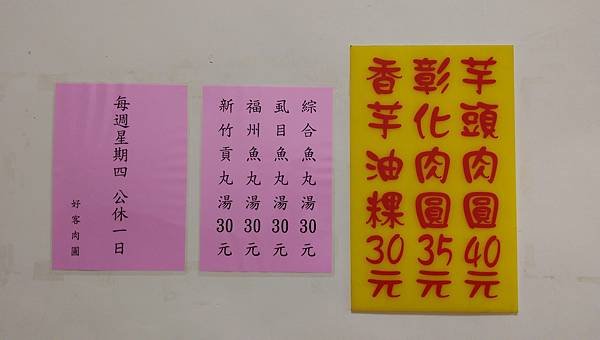 每週星期四 公休一日
好客肉圓
綜合魚丸湯30元
虱目魚丸湯30元
福州魚丸湯30元
新竹貢丸湯30元
芋頭肉圓40元
彰化肉圓35元
香芋油粿30元